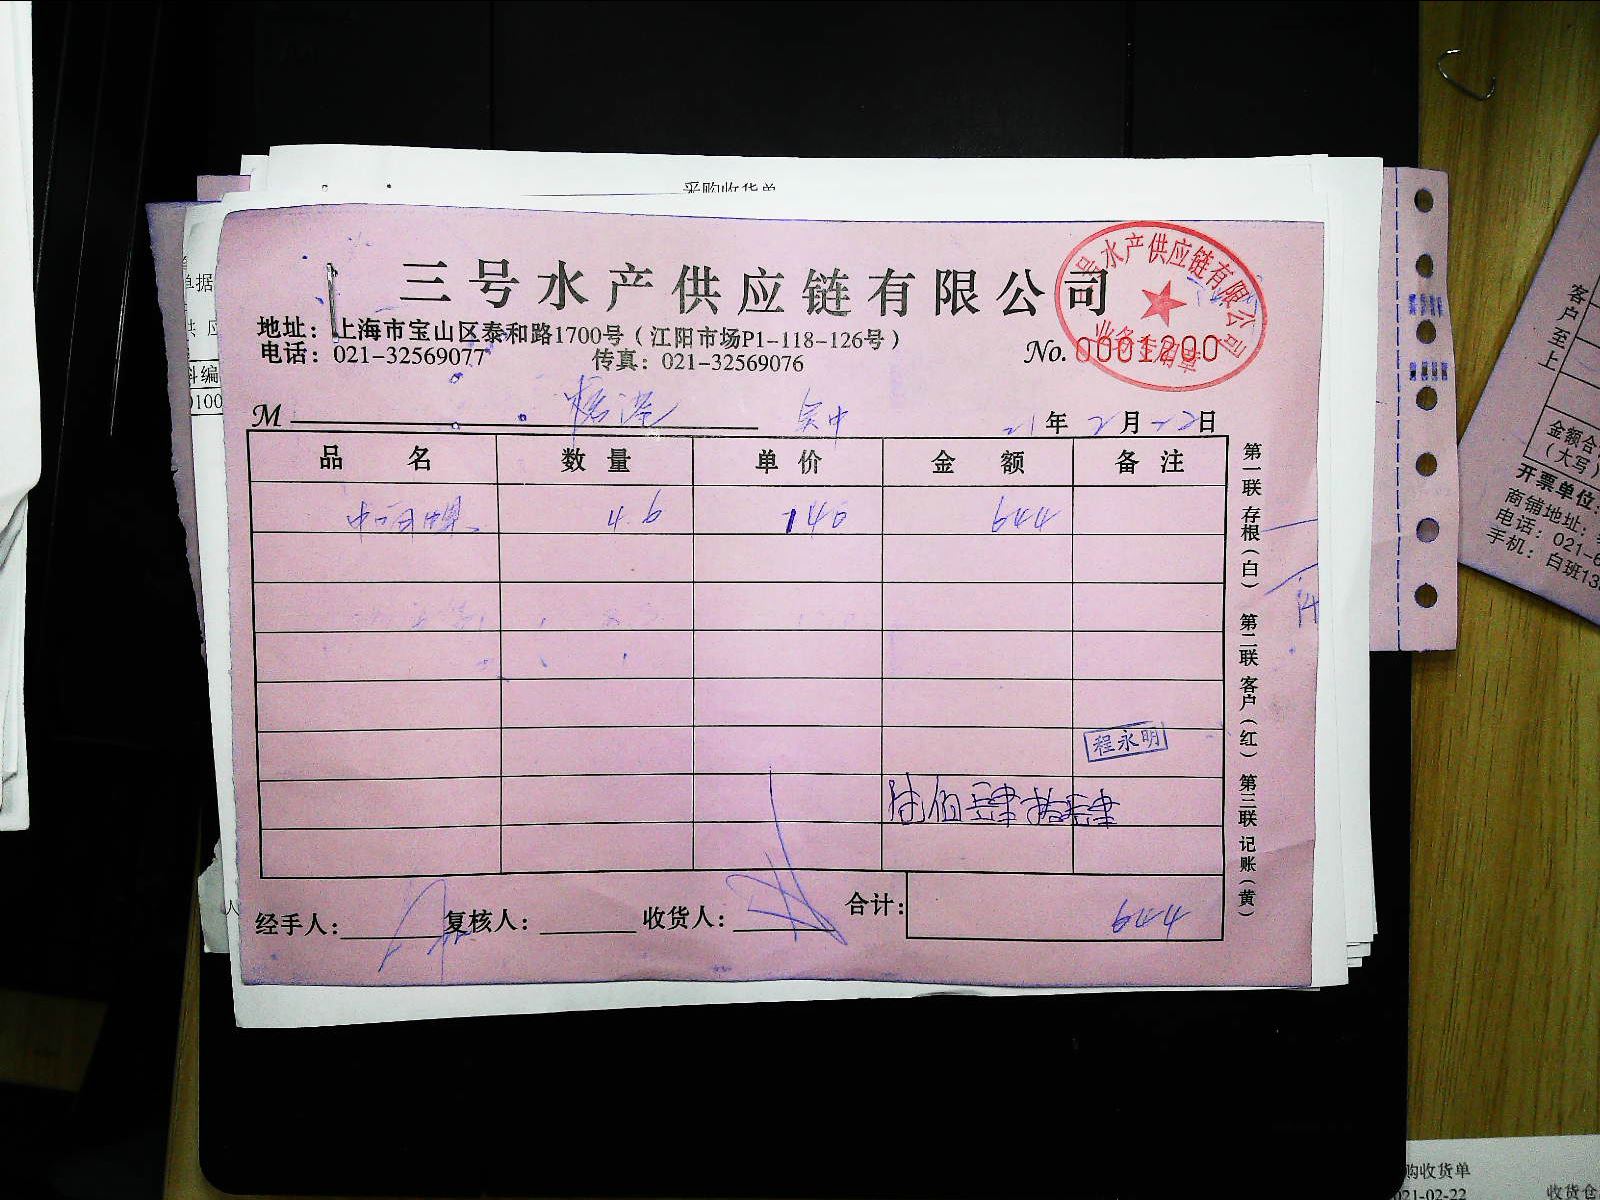 采购收货单
三号水产供应链有限公司
号水产供应链有限公司
业务专用章
地址：上海市宝山区泰和路1700号（江阳市场P1-118-126号）
电话：021-32569077 传真：021-32569076
No. 0001200
M 吴中 21年2月22日
品名 数量 单价 金额 备注
4.6 140 644
程永明
陆佰肆拾肆
经手人： 复核人： 收货人： 合计： 644
第一联 存根（白） 第二联 客户（红） 第三联 记账（黄）
单据
供应
料编
0100
人
客户
至上
金额合
（大写）
开票单位：
商铺地址：
电话：021-6
手机：白班13
购收货单
021-02-22
收货仓